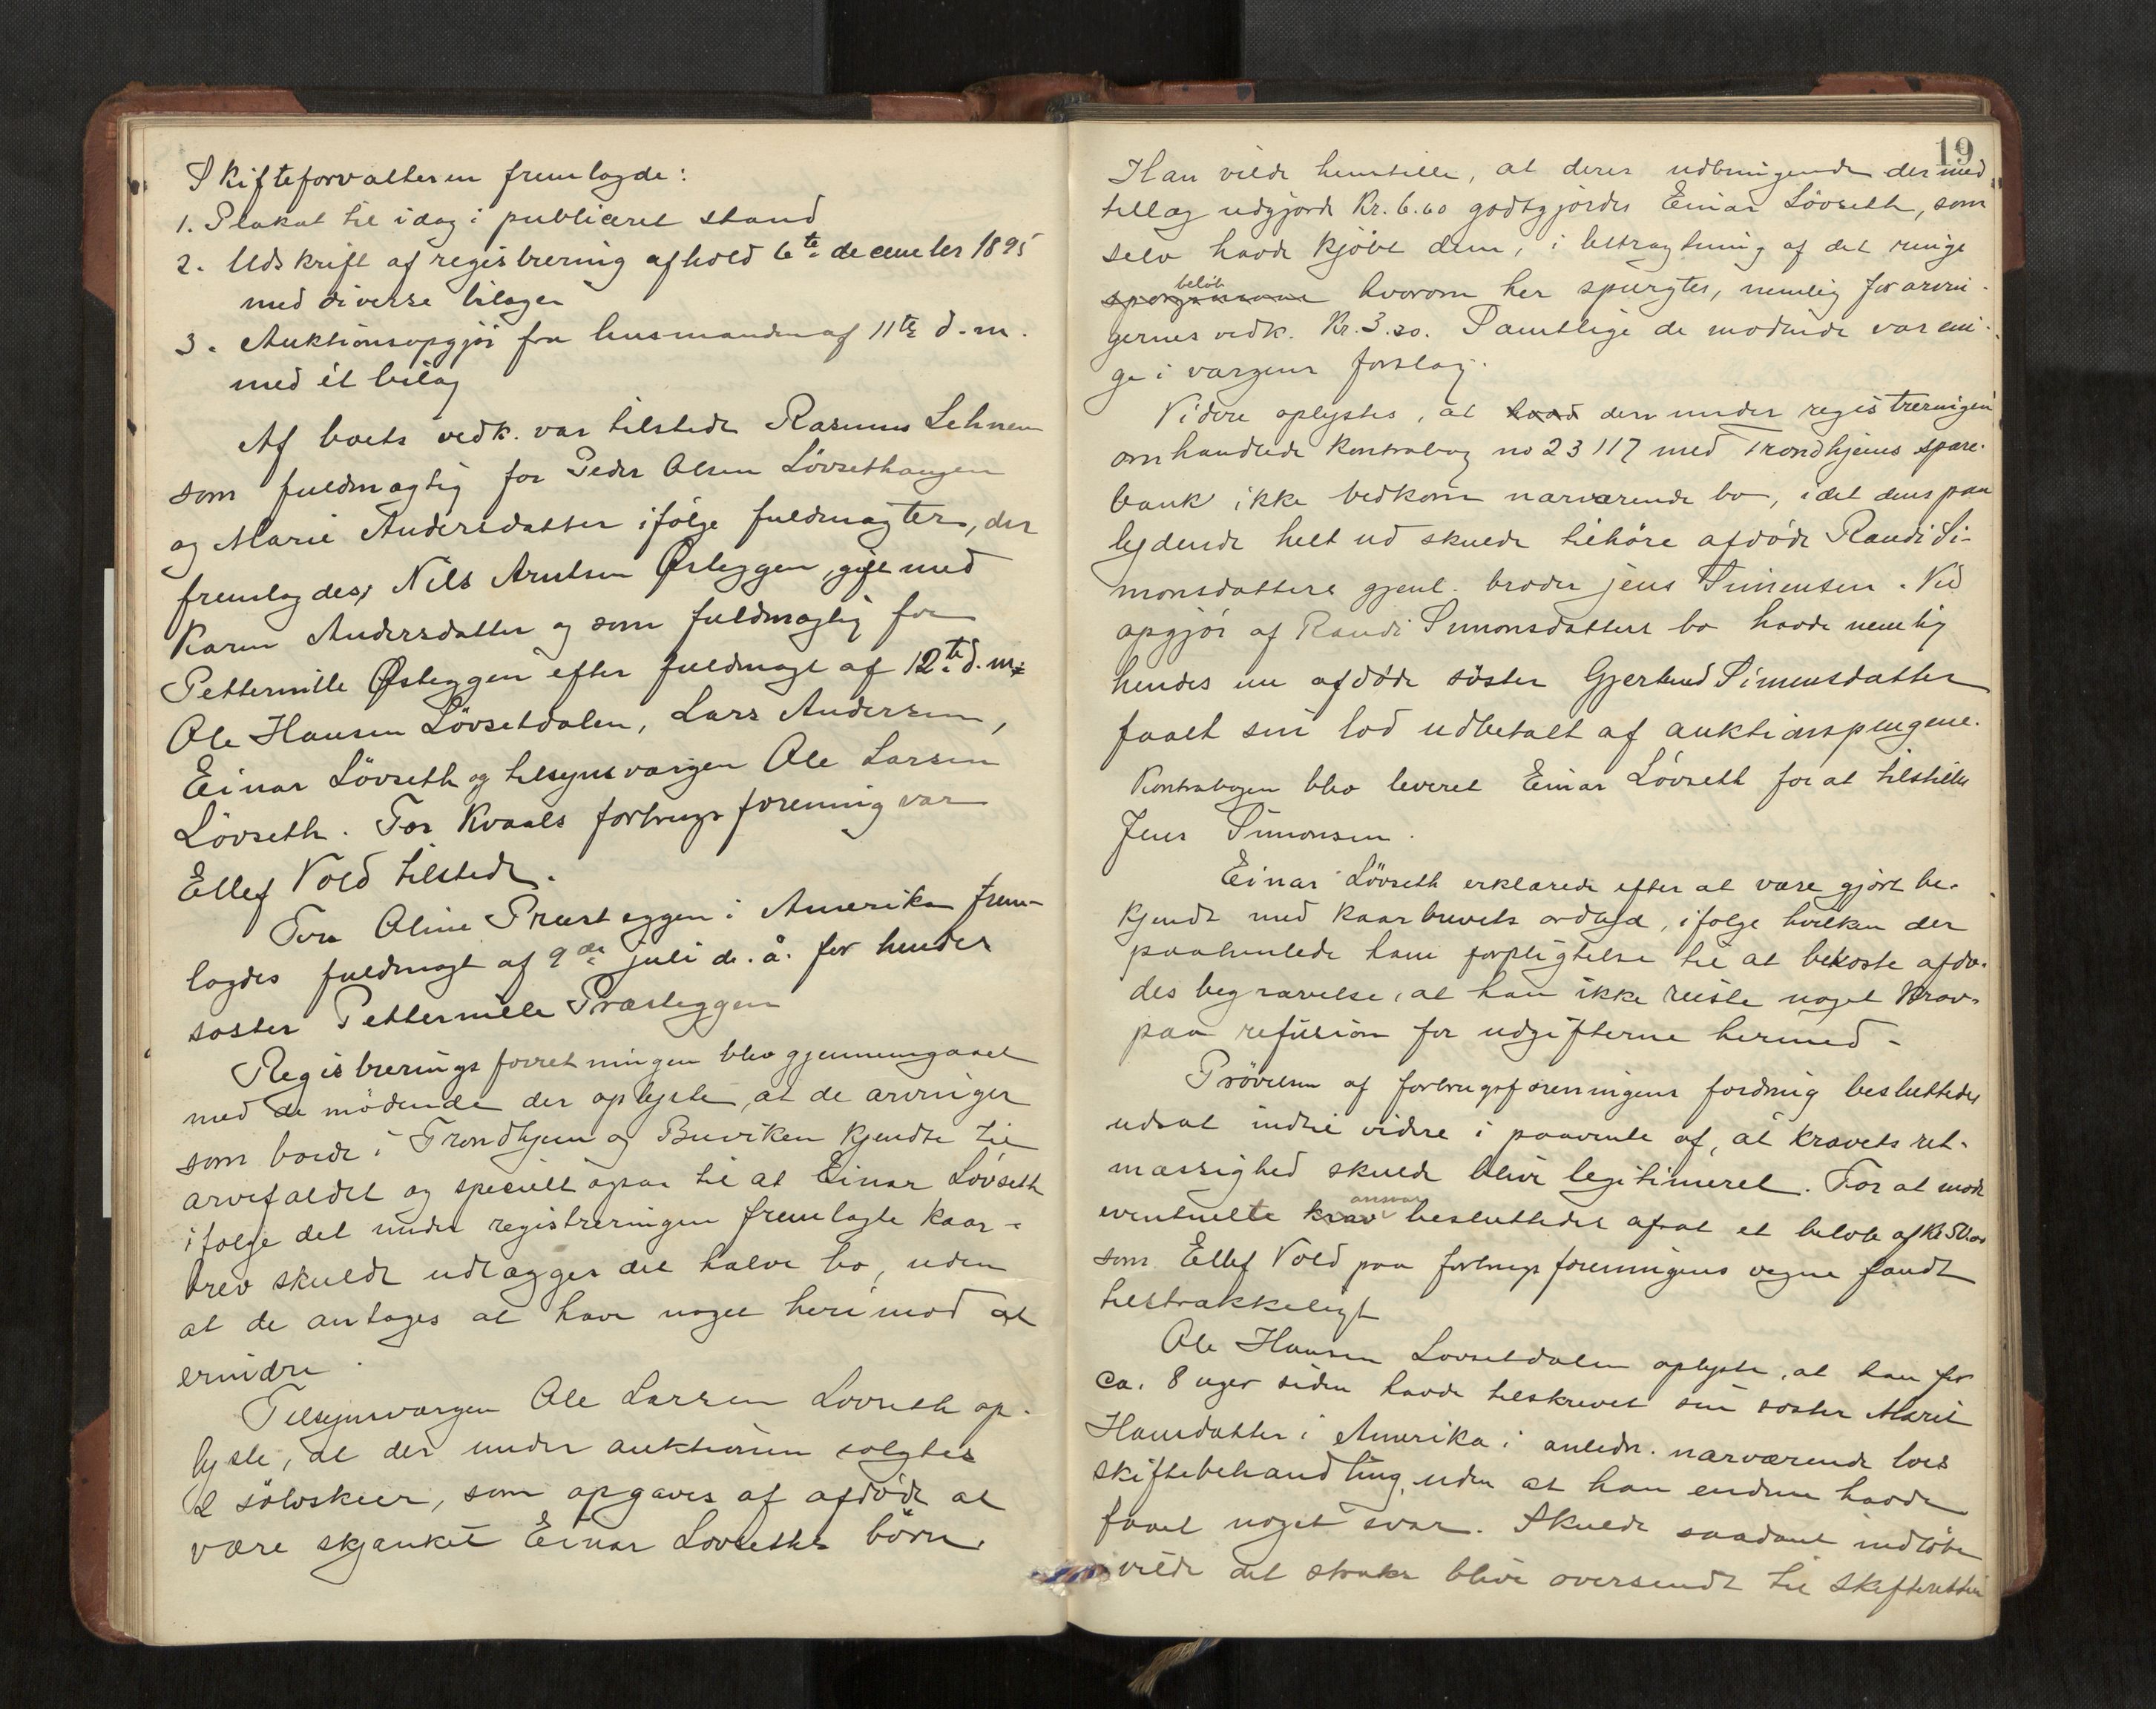 Skifteforvalteren fremlagde:
1. Plakat til idag i publiceret stand
2. Udskrift af registrering afhold 6te december 1895
med diverse bilager
3. Auktionsopgjør fra lensmanden af 11te d.m.
med ét bilag
Af boets vedk. var tilstede Rasmus Lehnem
som fuldmægtig for Peder Olsen Lövsethaugen
og Marie Andersdatter ifølge fuldmagter, der
fremlagdes, Nils Arntsen Østeggen, gift med
Karen Andersdatter og som fuldmægtig for
Pettermille Østeggen efter fuldmagt af 12te d.m.
Ole Hansen Lövsetdalen, Lars Andersen,
Einar Lövseth og tilsynsværgen Ole Larsen
Lövseth. For Kvaals forbrugsforening var
Ellef Vold tilstede.
For Oline Præsteggen i Amerika frem-
lagdes fuldmagt af 9de juli d.å. for hendes
søster Pettermille Præsteggen
Registreringsforretningen blev gjennemgaaet
med de mødende der oplyste, at de arvinger
som boede i Trondhjem og Buviken kjendte til
arvefaldet og specielt ogsaa til at Einar Lövseth
ifølge det under registreringen fremlagte kaar-
brev skulde udlægges det halve bo, uden
at de antages at have noget herimod at
erindre.
Tilsynsværgen Ole Larsen Lövseth op-
lyste, at der under auktionen solgtes
2 sölvskeer, som opgaves af afdøde at
være skjænket Einar Lovseths börn.
19
Han vilde henstille, at deres udbringende der med
tillæg udgjorde Kr. 6.60 godtgjørdes Einar Lövseth, som
selv havde kjöbt dem, i betragtning af det ringe
beløb
hvorom her spurgtes, nemlig for arvin-
gernes vedk. Kr. 3.30. Samtlige de mødende var eni-
ge i værgens forslag.
Videre oplystes, at hvad den under registreringen
omhandlede kontrabog no 23117 med Trondhjems spare-
bank ikke vedkom nærværende bo, idet dens paa
lydende helt ud skulde tilhöre afdöde Randi Si-
monsdatters gjenl. broder Jens Simensen. Ved
opgjör af Randi Simonsdatters bo havde nemlig
hendes nu afdöde söster Gjertrud Simensdatter
faaet sin lod udbetalt af auktionspengene.
Kontrabogen blev leveret Einar Lövseth for at tilstilles
Jens Simonsen.
Einar Lövseth erklærede efter at være gjört be-
kjendt med kaarbrevets ordlyd, ifølge hvilken der
paahvilede ham forpligtelse til at bekoste afdø-
des begravelse, at han ikke reiste noget krav
paa refusion for udgifterne hermed.
Prövelsen af forbrugsforeningens fordring besluttedes
udsat indtil videre i paavente af, at kravets ret-
mæssighed skulde blive legitimeret. For at møde
ansvar
eventuelte krav besluttedes afsat et beløb af Kr 50.00
som Ellef Vold paa forbrugsforeningens vegne fandt
tilstrækkeligt
Ole Hansen Lovsetdalen oplyste, at han for
ca. 8 uger siden havde tilskrevet sin søster Marit
Hansdatter i Amerika i anledn. nærværende boes
skiftebehandling, uden at han endnu havde
faaet noget svar. Skulde saadant indlöbe
vilde det straks blive oversendt til skifteretten